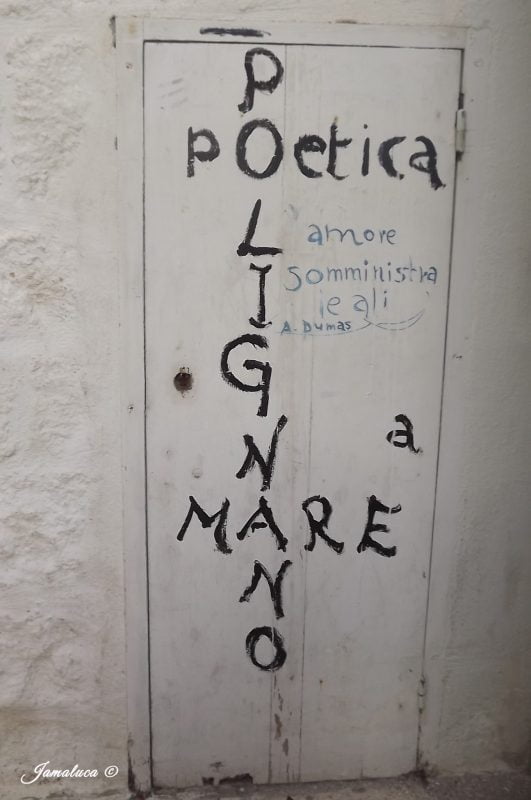 POLIGNANO
Poetica
amore
somministra
le ali
A. Dumas
a
MARE
Jamaluca ©